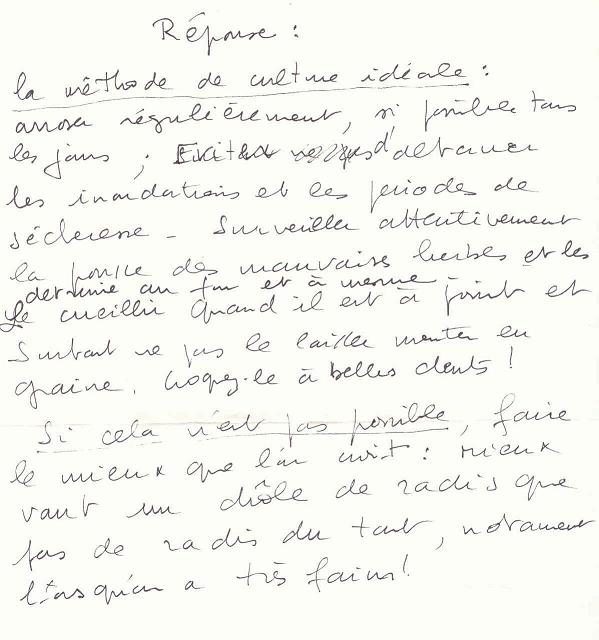 Réponse :
la méthode de culture idéale :
arroser régulièrement, si possible tous
les jours ; Eviter d'alterner
les inondations et les périodes de
sécheresse - Surveiller attentivement
la pousse des mauvaises herbes et les
détruire au fur et à mesure
Le cueillir quand il est à point et
Surtout ne pas le laisser monter en
graine. Croquez-le à belles dents !
Si cela n'est pas possible, faire
le mieux que l'on croit : mieux
vaut un drôle de radis que
pas de radis du tout, notament
lorsqu'on a très faim !